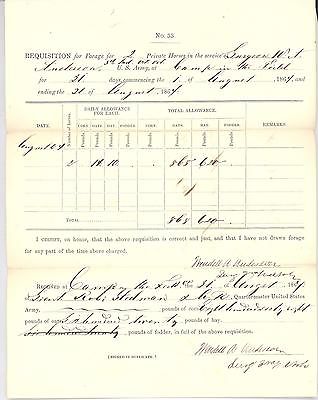 No. 33
REQUISITION for Forage for 2 Private Horses in the service Surgeon W. A.
Anderson, 3d Md. vet vol U. S. Army, at Camp in the Field
for 31 days, commencing the 1 of August, 1864, and
ending the 31 of August, 1864.
DAILY ALLOWANCE FOR EACH. TOTAL ALLOWANCE.
DATE. Number of horses. CORN HAY FODDER. CORN HAY. FODDER. REMARKS.
Pounds. Pounds. Pounds. Pounds. Pounds. Pounds.
August 64 2 14 10 868 620
TOTAL 868 620
I CERTIFY, on honor, that the above requisition is correct and just, and that I have not drawn forage
for any part of the time above charged.
Wendell A Anderson
Surg 3d Md
RECEIVED at Camp in the Field the 31 of August, 1864,
of Quartermaster United States
Army, pounds of Eight hundred sixty eight
pounds of Six hundred twenty pounds of hay,
pounds of fodder, in full of the above requisition.
Wendell A Anderson
Surg 3d Md Vols
[SIGNED IN DUPLICATE.]